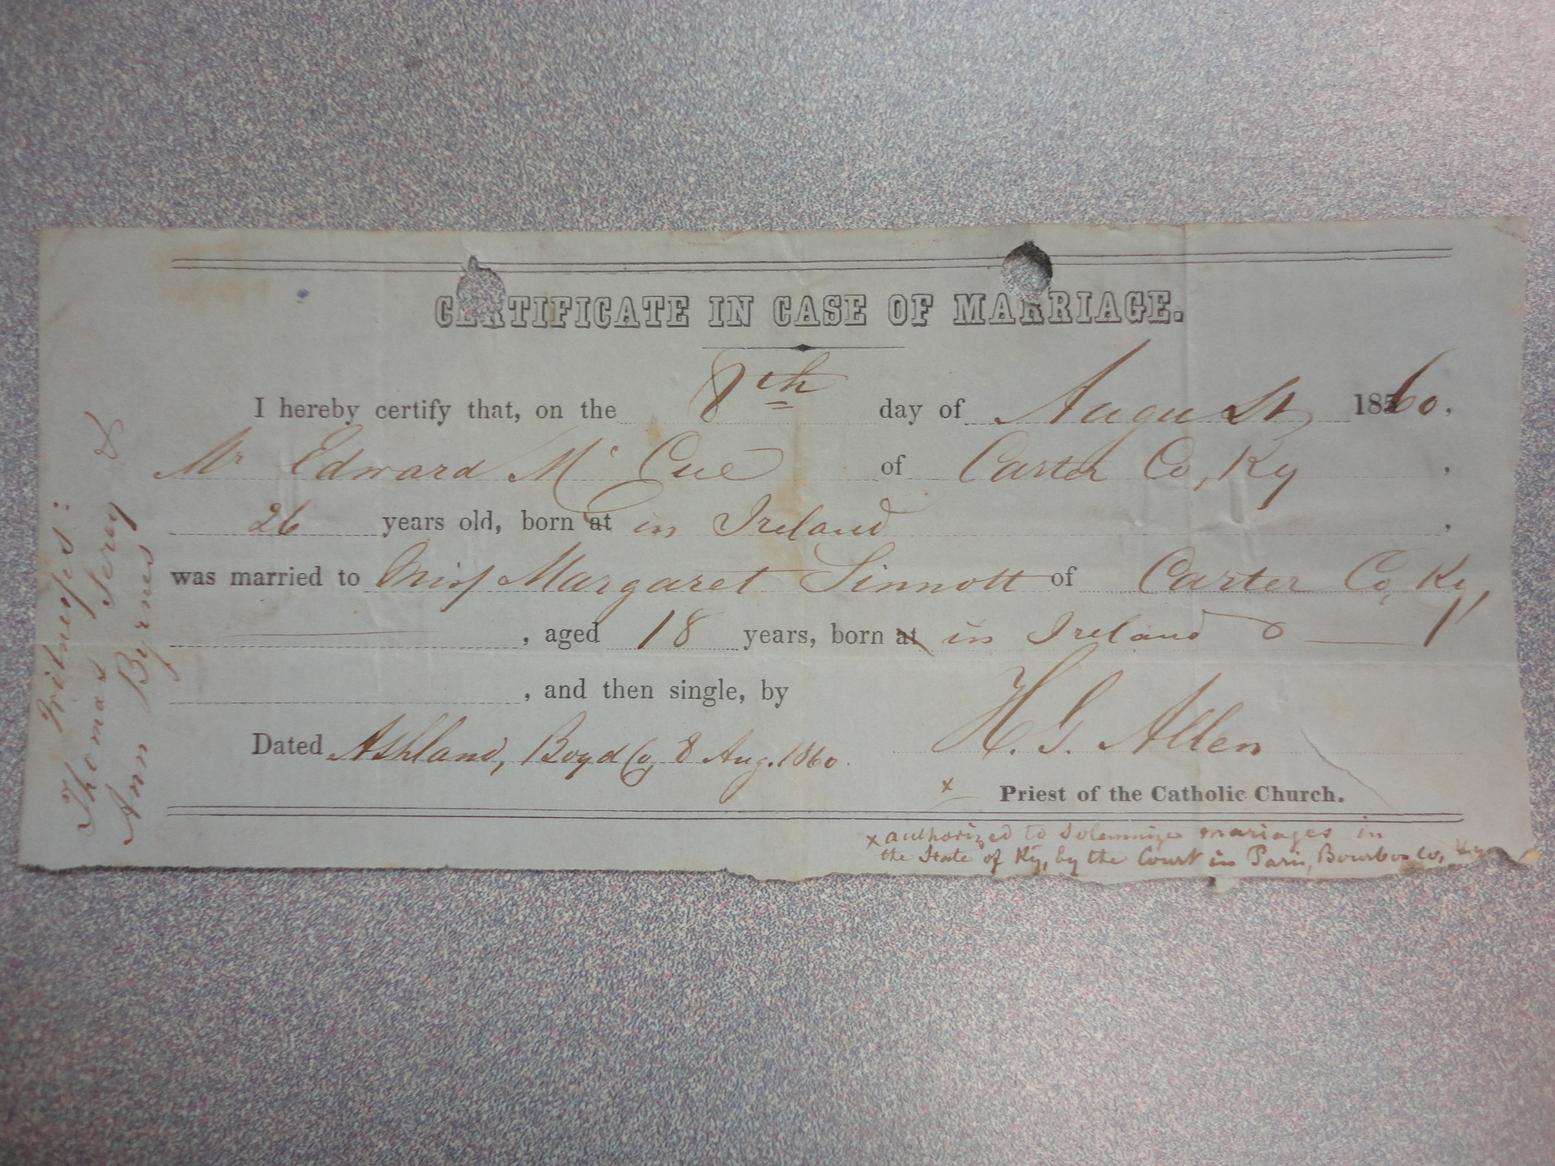 CERTIFICATE IN CASE OF MARRIAGE.
I hereby certify that, on the 8th day of August 1860,
Mr Edward Mc Cue of Carter Co, Ky,
26 years old, born at in Ireland,
was married to Miss Margaret Sinnott of Carter Co, Ky,
, aged 18 years, born at in Ireland
, and then single, by
Dated Ashland, Boyd Co, 8 Aug. 1860. H. G. Allen
x Priest of the Catholic Church.
x authorized to solemnize mariages in
the State of Ky, by the Court in Paris, Bourbon Co, Ky
Witnesses:
Thomas &
Ann Byrnes